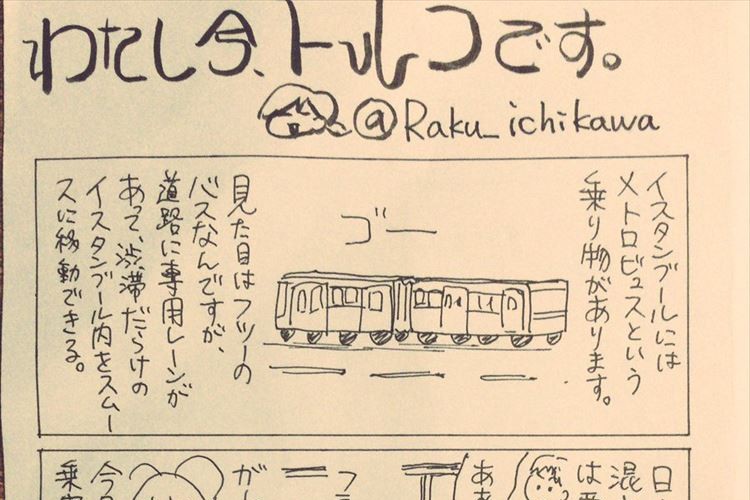 わたし今、トルコです。
@Raku_ichikawa
イスタンブールには
メトロビュスという
乗り物があります。
ゴー
見た目はフツーの
バスなんですが、
道路に専用レーンが
あって、渋滞だらけの
イスタンブール内をスムー
スに移動できる。
日
混
は
あ
フラ
が
今
乗